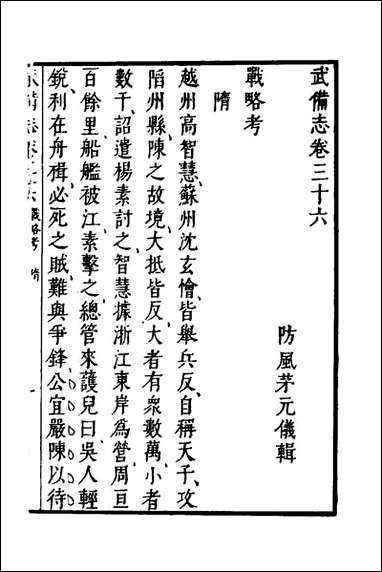 武備志卷三十六
防風茅元儀輯
戰略考
隋
越州高智慧、蘇州沈玄懀、皆舉兵反、自稱天子、攻
陷州縣、陳之故境、大抵皆反、大者有衆數萬、小者
數千、詔遣楊素討之、智慧據浙江東岸為營、周亘
百餘里、船艦被江、素擊之、總管來護兒曰、吳人輕
銳、利在舟楫、必死之賊、難與爭鋒、公宜嚴陳以待
武備志卷三十六 戰略考 隋 一